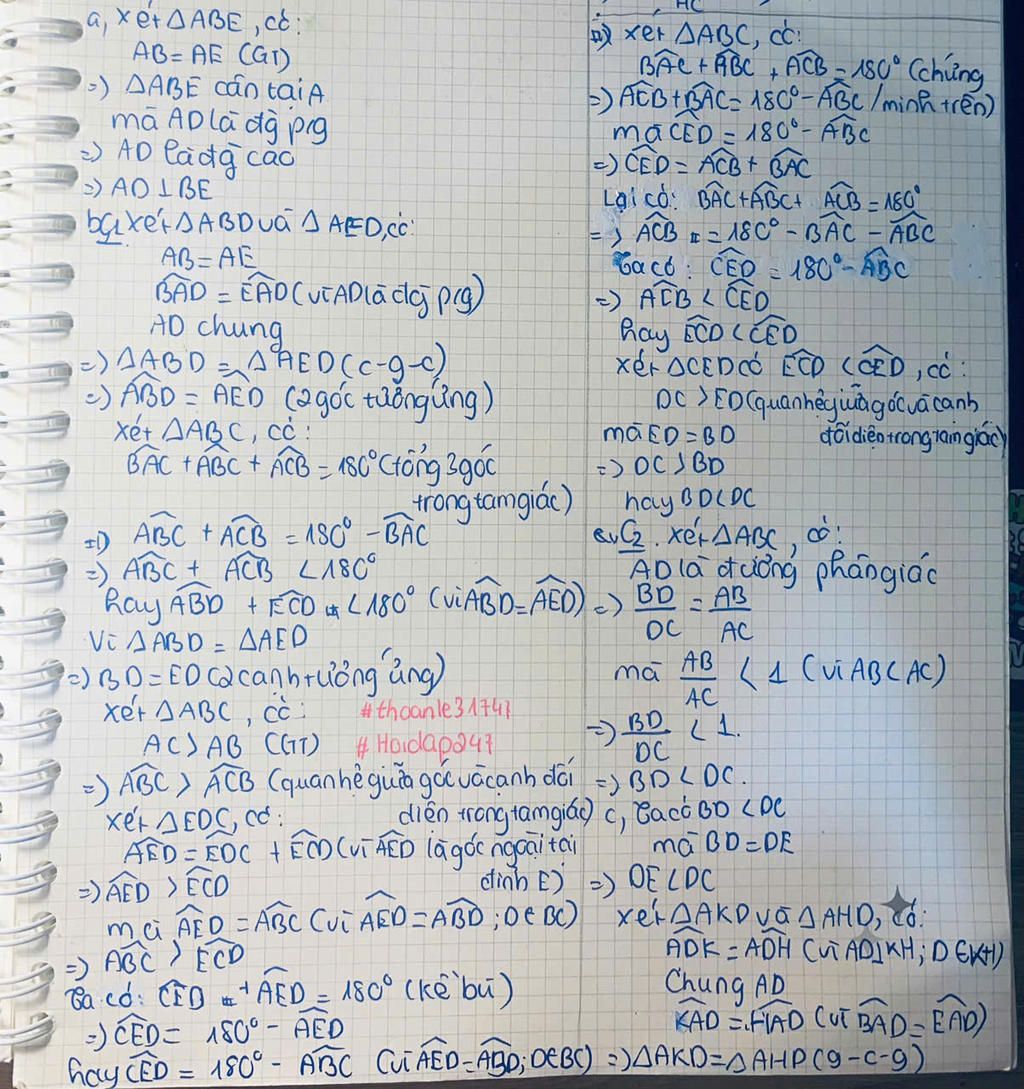 a, xét ΔABE, có:
AB = AE (GT)
=> ΔABE cân tại A
mà AD là đg p/g
=> AD là đg cao
=> AD ⊥ BE
b, C1 xét ΔABD và ΔAED, có:
AB = AE
B̂AD = ÊAD (vì AD là đg p/g)
AD chung
=> ΔABD = ΔAED (c-g-c)
=> ÂBD = ÂED (2 góc tương ứng)
xét ΔABC, có:
B̂AC + ÂBC + ÂCB = 180° (tổng 3 góc
trong tam giác)
=> ÂBC + ÂCB = 180° - B̂AC
=> ÂBC + ÂCB < 180°
hay ÂBD + ÊCD < 180° (vì ÂBD = ÂED)
Vì ΔABD = ΔAED
=> BD = ED (2 cạnh tương ứng)
xét ΔABC, có: #thoanle31747
AC > AB (GT) #Hoidap247
=> ÂBC > ÂCB (quan hệ giữa góc và cạnh đối
diện trong tam giác)
xét ΔEDC, có:
ÂED = ÊDC + ÊCD (vì ÂED là góc ngoài tại
đỉnh E)
=> ÂED > ÊCD
mà ÂED = ÂBC (vì ÂED = ÂBD; D∈BC)
=> ÂBC > ÊCD
Ta có: ĈED + ÂED = 180° (kề bù)
=> ĈED = 180° - ÂED
hay ĈED = 180° - ÂBC (vì ÂED = ÂBD; D∈BC)
AC
xét ΔABC, có:
B̂AC + ÂBC + ÂCB = 180° (chứng
minh trên)
=> ÂCB + B̂AC = 180° - ÂBC
mà ĈED = 180° - ÂBC
=> ĈED = ÂCB + B̂AC
Lại có: B̂AC + ÂBC + ÂCB = 180°
=> ÂCB = 180° - B̂AC - ÂBC
Ta có: ĈED = 180° - ÂBC
=> ÂCB < ĈED
hay ÊCD < ĈED
xét ΔCED có ÊCD < ĈED, có:
DC > ED (quan hệ giữa góc và cạnh
đối diện trong tam giác)
mà ED = BD
=> DC > BD
hay BD < DC
C2. xét ΔABC, có:
AD là đường phân giác
=> BD/DC = AB/AC
mà AB/AC < 1 (vì AB < AC)
=> BD/DC < 1.
=> BD < DC.
c, Ta có BD < DC
mà BD = DE
=> DE < DC
xét ΔAKD và ΔAHD, có:
ÂDK = ÂDH (vì AD⊥KH; D∈KH)
Chung AD
K̂AD = ĤAD (vì B̂AD = ÊAD)
=> ΔAKD = ΔAHD (g-c-g)